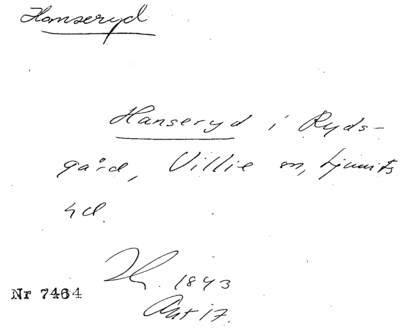 Hanseryd
Hanseryd i Ryds-
gård, Villie sn, Ljunits
hd.
1843
Nr 7464
Akt 17.